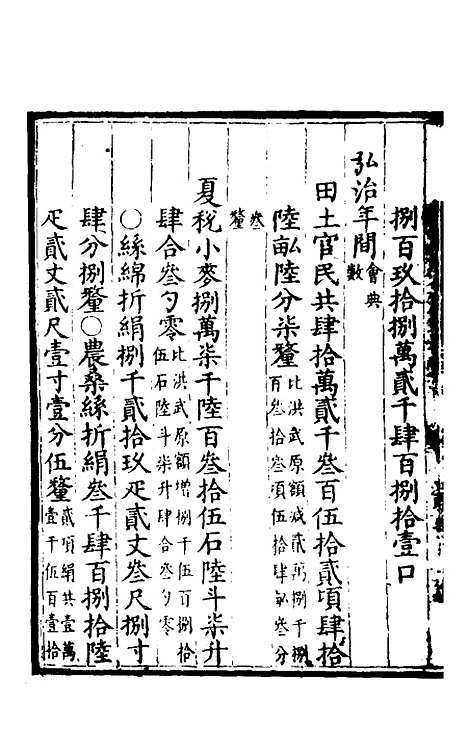 捌百玖拾捌萬貳千肆百捌拾壹口
弘治年間會典數
田土官民共肆拾萬貳千叁百伍拾貳項肆拾
陸畝陸分柒釐比洪武原額減貳萬捌千捌百叁拾叁項伍拾肆畝叁分
叁釐
夏稅小麥捌萬柒千陸百叁拾伍石陸斗柒升
肆合叁勺零比洪武原額增捌千伍百捌拾伍石陸斗柒升肆合叁勺零
○絲綿折絹捌千貳拾玖疋貳丈叁尺捌寸
肆分捌釐○農桑絲折絹叁千肆百捌拾陸
疋貳丈貳尺壹寸壹分伍釐貳項絹共壹萬壹千伍百壹拾